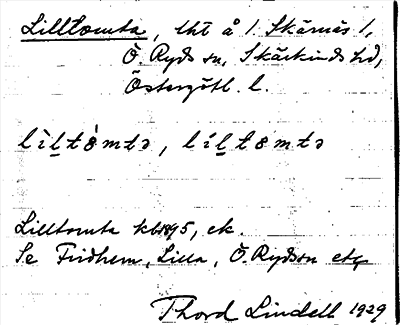 Lilltomta, lht å 1 Skärnäs 1,
Ö. Ryds sn, Skärkinds hd,
Östergötl. l.
Lilltomta kb 1895, ek.
Se Fridhem, Lilla, Ö. Ryds sn etc
Thord Lindell 1929